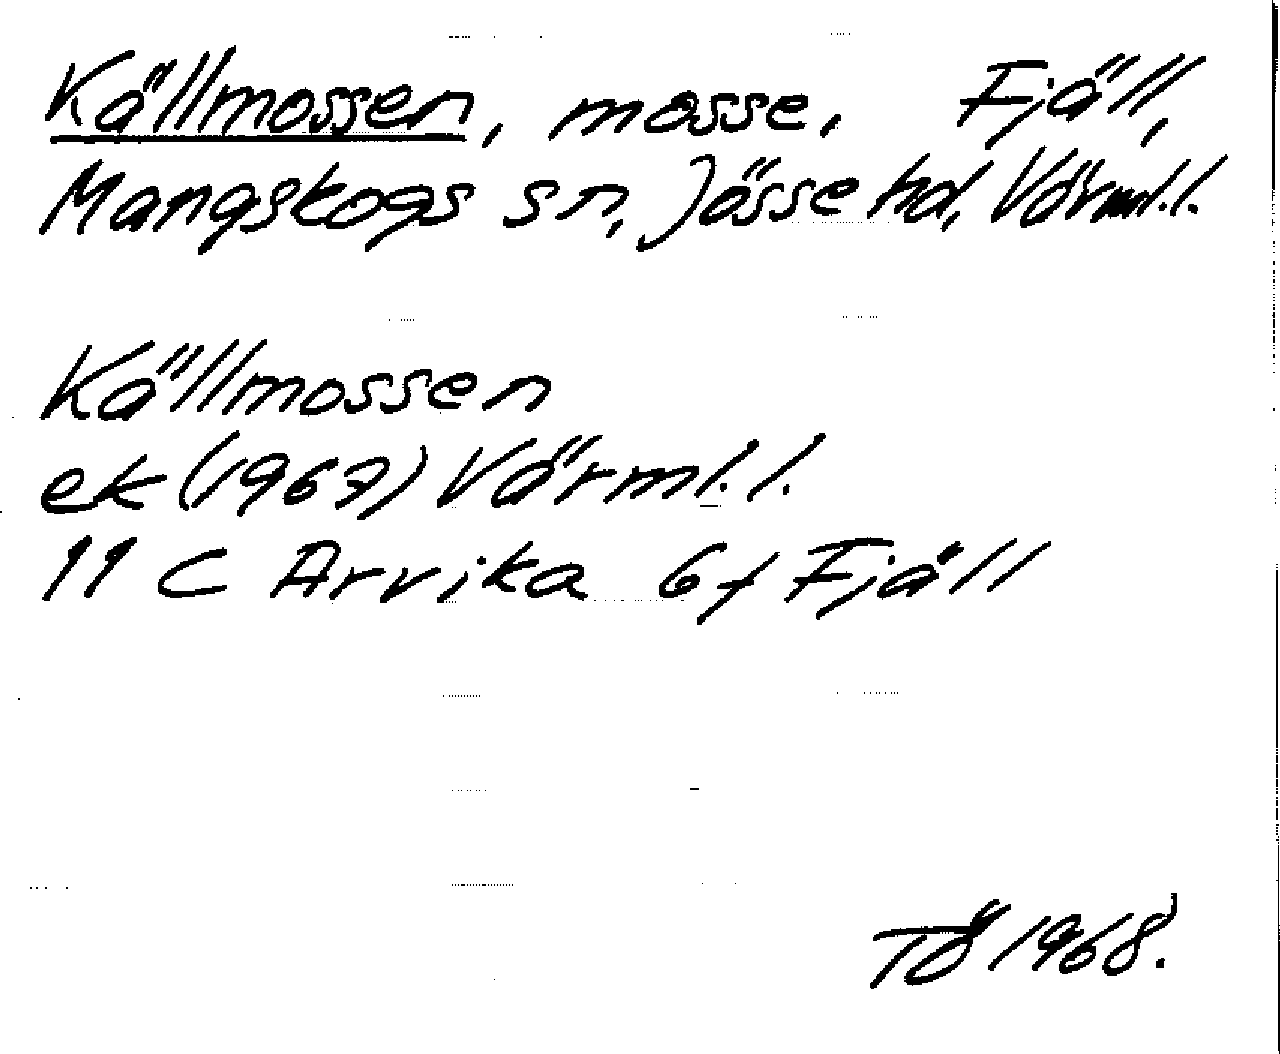 Källmossen, mosse, Fjäll,
Mangskogs sn, Jösse hd, Värml.l.
Källmossen
ek (1967) Värml.l.
11 C Arvika 6f Fjäll
TÖ 1968.